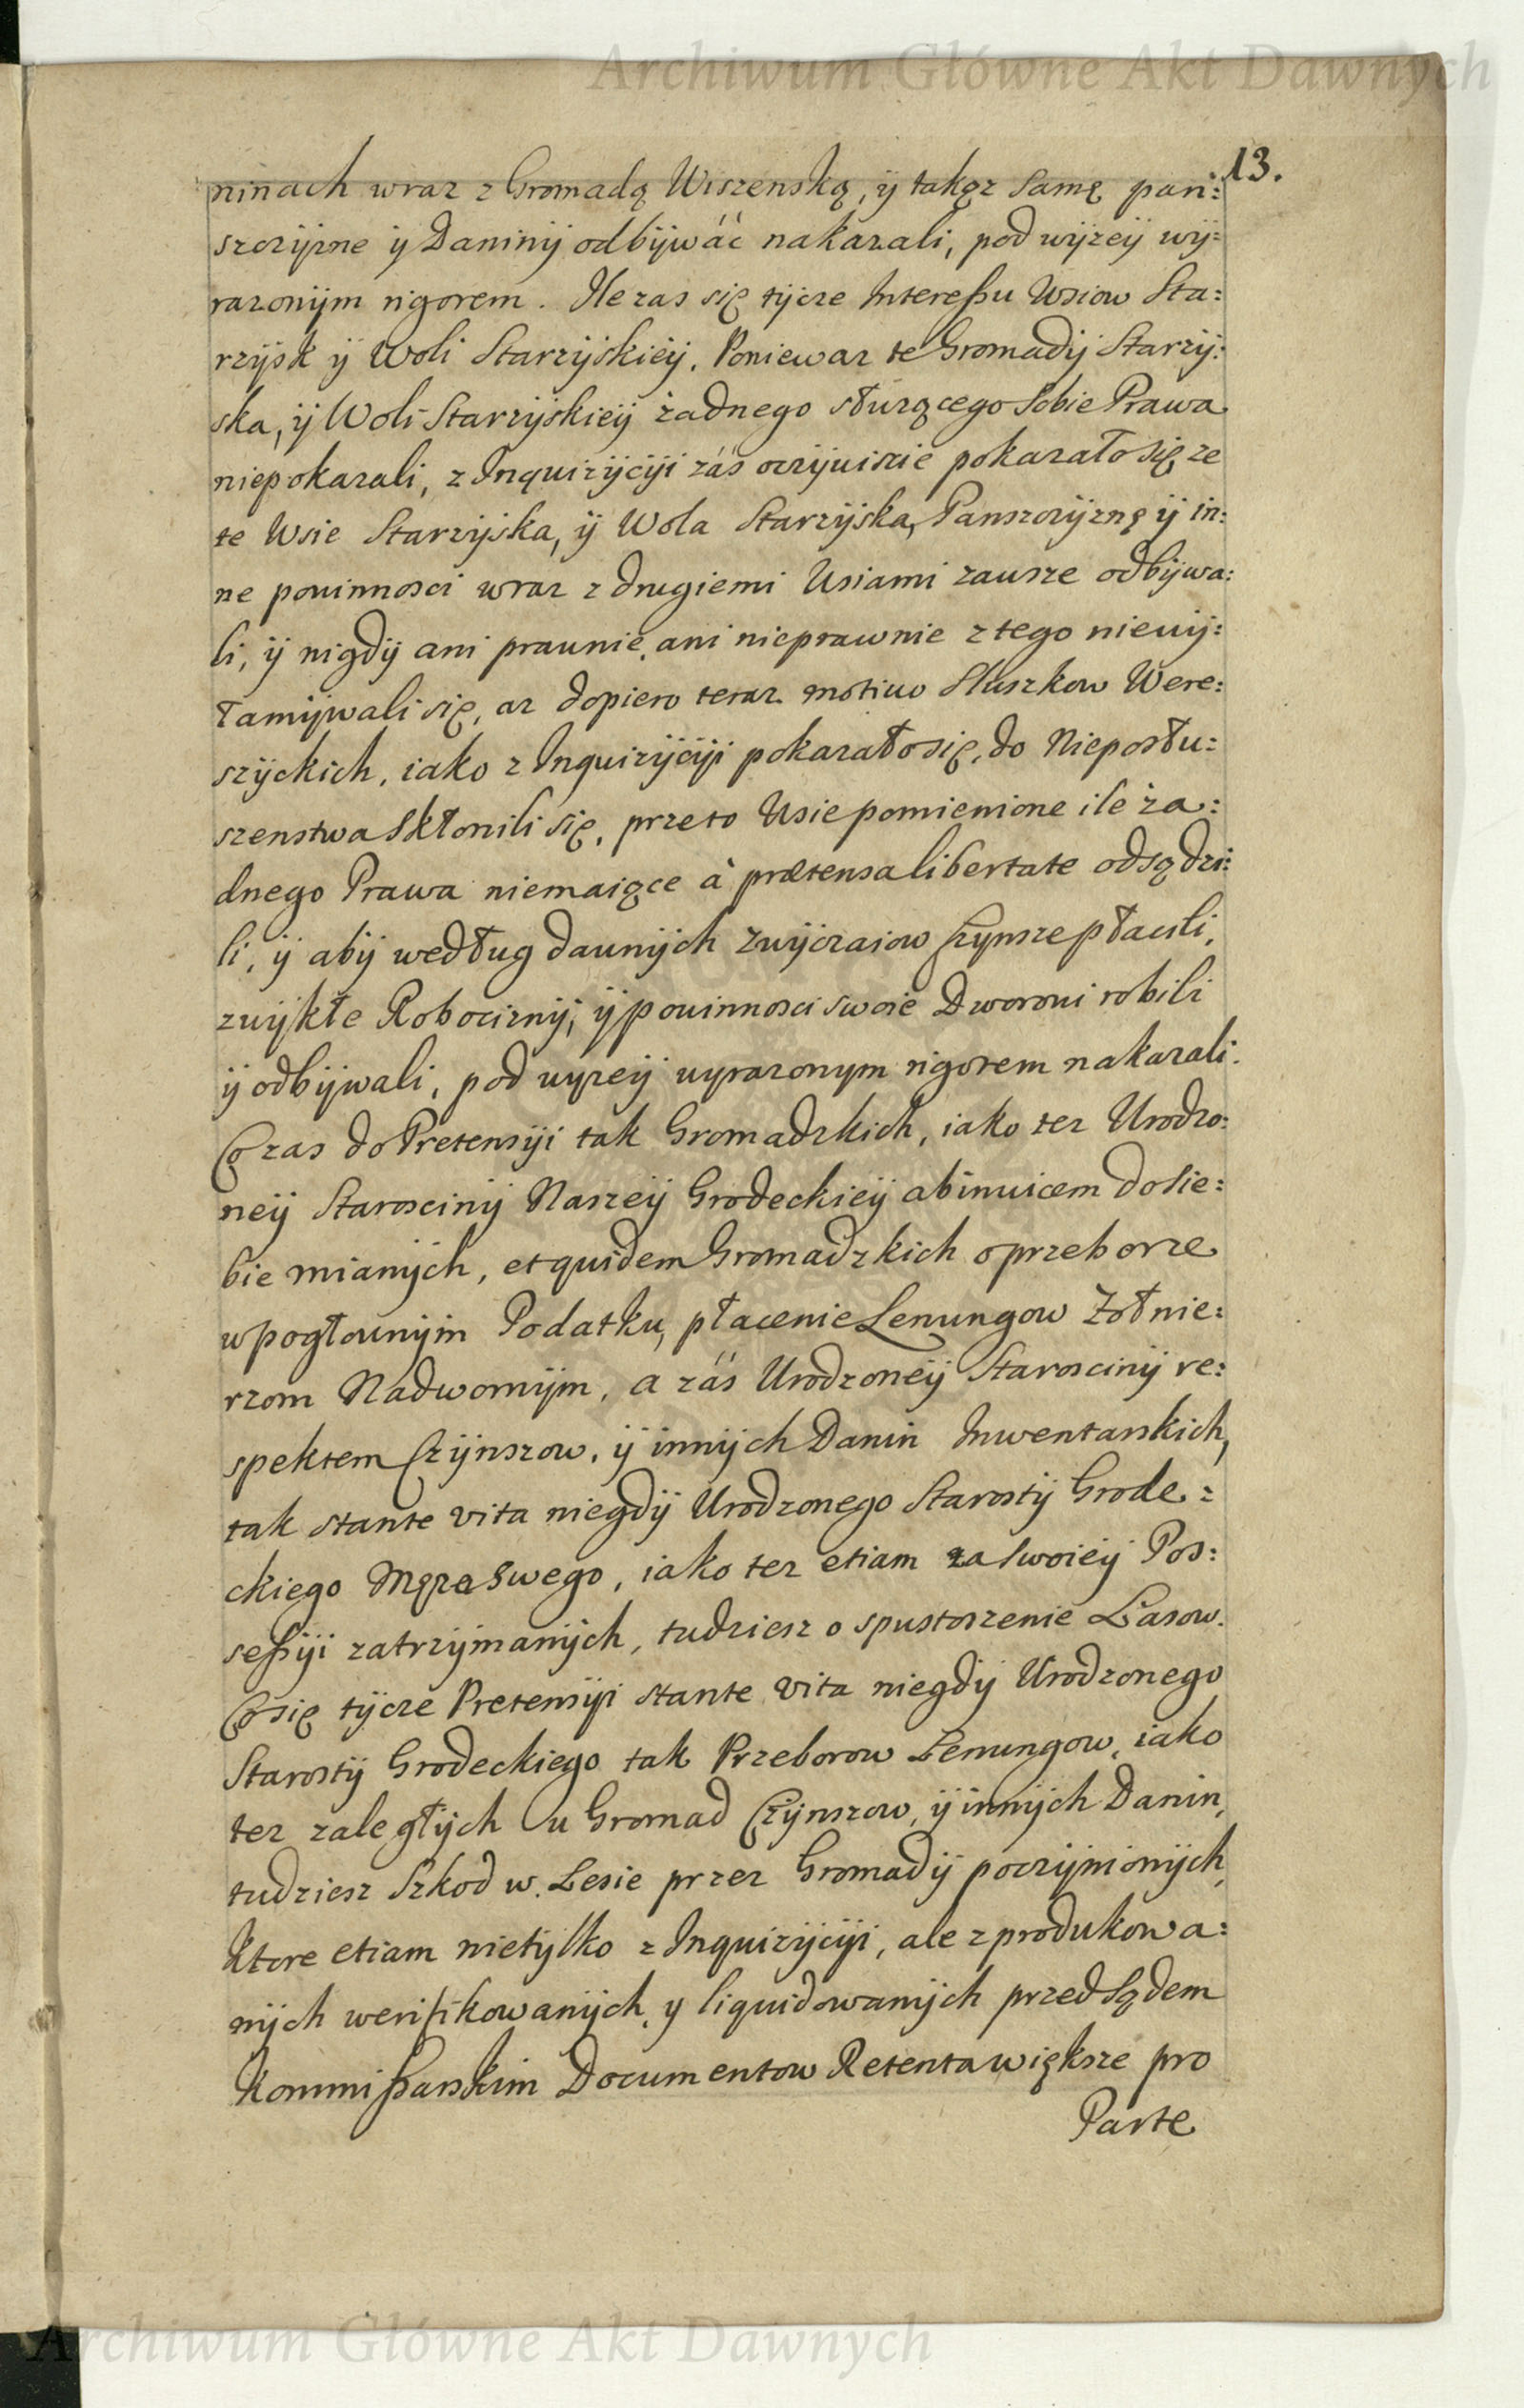 Archiwum Główne Akt Dawnych
13.
ninach wraz z Gromadą Wiszenską, ÿ takąz Samę pań:
szczÿznę ÿ Daninÿ odbÿwáć nakazali, pod wÿżeÿ wÿ:
razonÿm rigorem. Ile zas się tÿcze Interessu Wsiow Sta:
rzÿsk ÿ Woli Starzÿskieÿ. Poniewaz te Gromadÿ Starzÿ:
ska, ÿ Woli Starzÿskieÿ żadnego słuzącego Sobie Prawa
niepokazali, z Inquizÿcÿi záś oczÿwiscie pokazało się ze
te Wsie Starzÿska, ÿ Wola Starzÿska, Panszczÿznę ÿ in:
ne powinnosci wraz z drugiemi Wsiami zawsze odbÿwa:
li, ÿ nigdÿ ani prawnie, ani nieprawnie z tego niewÿ:
łamÿwali się, az dopiero teraz motivo Sluszkow Were:
szÿckich, iako z Inquizÿcÿi pokazało się, do Nieposłu:
szenstwa Skłonili się, przeto Wsie pomienione ile ża:
dnego Prawa niemaiące à prætensa libertate odsądzi:
li, ÿ abÿ według dawnÿch zwÿczaiow Czynsze płacili,
zwÿkłe Robociznÿ, ÿ powinnosci swoie Dworowi robili
ÿ odbÿwali, pod wyzeÿ wyrazonym rigorem nakazali.
Co zas do Pretensÿi tak Gromadzkich, iako tez Urodzo:
neÿ Staroscinÿ Naszeÿ Grodeckieÿ abinuicem do Sie:
bie mianÿch, et quidem Gromadzkich o przeborze
w pogłownÿm Podatku, płacenie Lenungow Zołnie:
rzom Nadwornÿm, a záś Urodzoneÿ Starosciny re:
spektem Czÿnszow, ÿ innÿch Danin Inwentarskich,
tak stante vita niegdÿ Urodzonego Starostÿ Grode:
ckiego Męza Swego, iako tez etiam za Swoieÿ Pos:
sessÿi zatrzÿmanÿch, tudziesz o spustoszenie Lasow.
Co się tÿcze Pretensÿi stante vita niegdÿ Urodzonego
Starostÿ Grodeckiego tak Przeborow Lenungow, iako
tez zaległÿch u Gromad Czÿnszow, ÿ innÿch Danin,
tudziesz Szkod w Lesie przez Gromadÿ poczÿnionÿch,
Ktore etiam nietÿlko z Inquizÿcÿi, ale z produkowa:
nÿch werifikowanÿch, y liquidowanÿch przed Sądem
Kommissarskim Documentow Retenta większe pro
Parte
Archiwum Główne Akt Dawnych